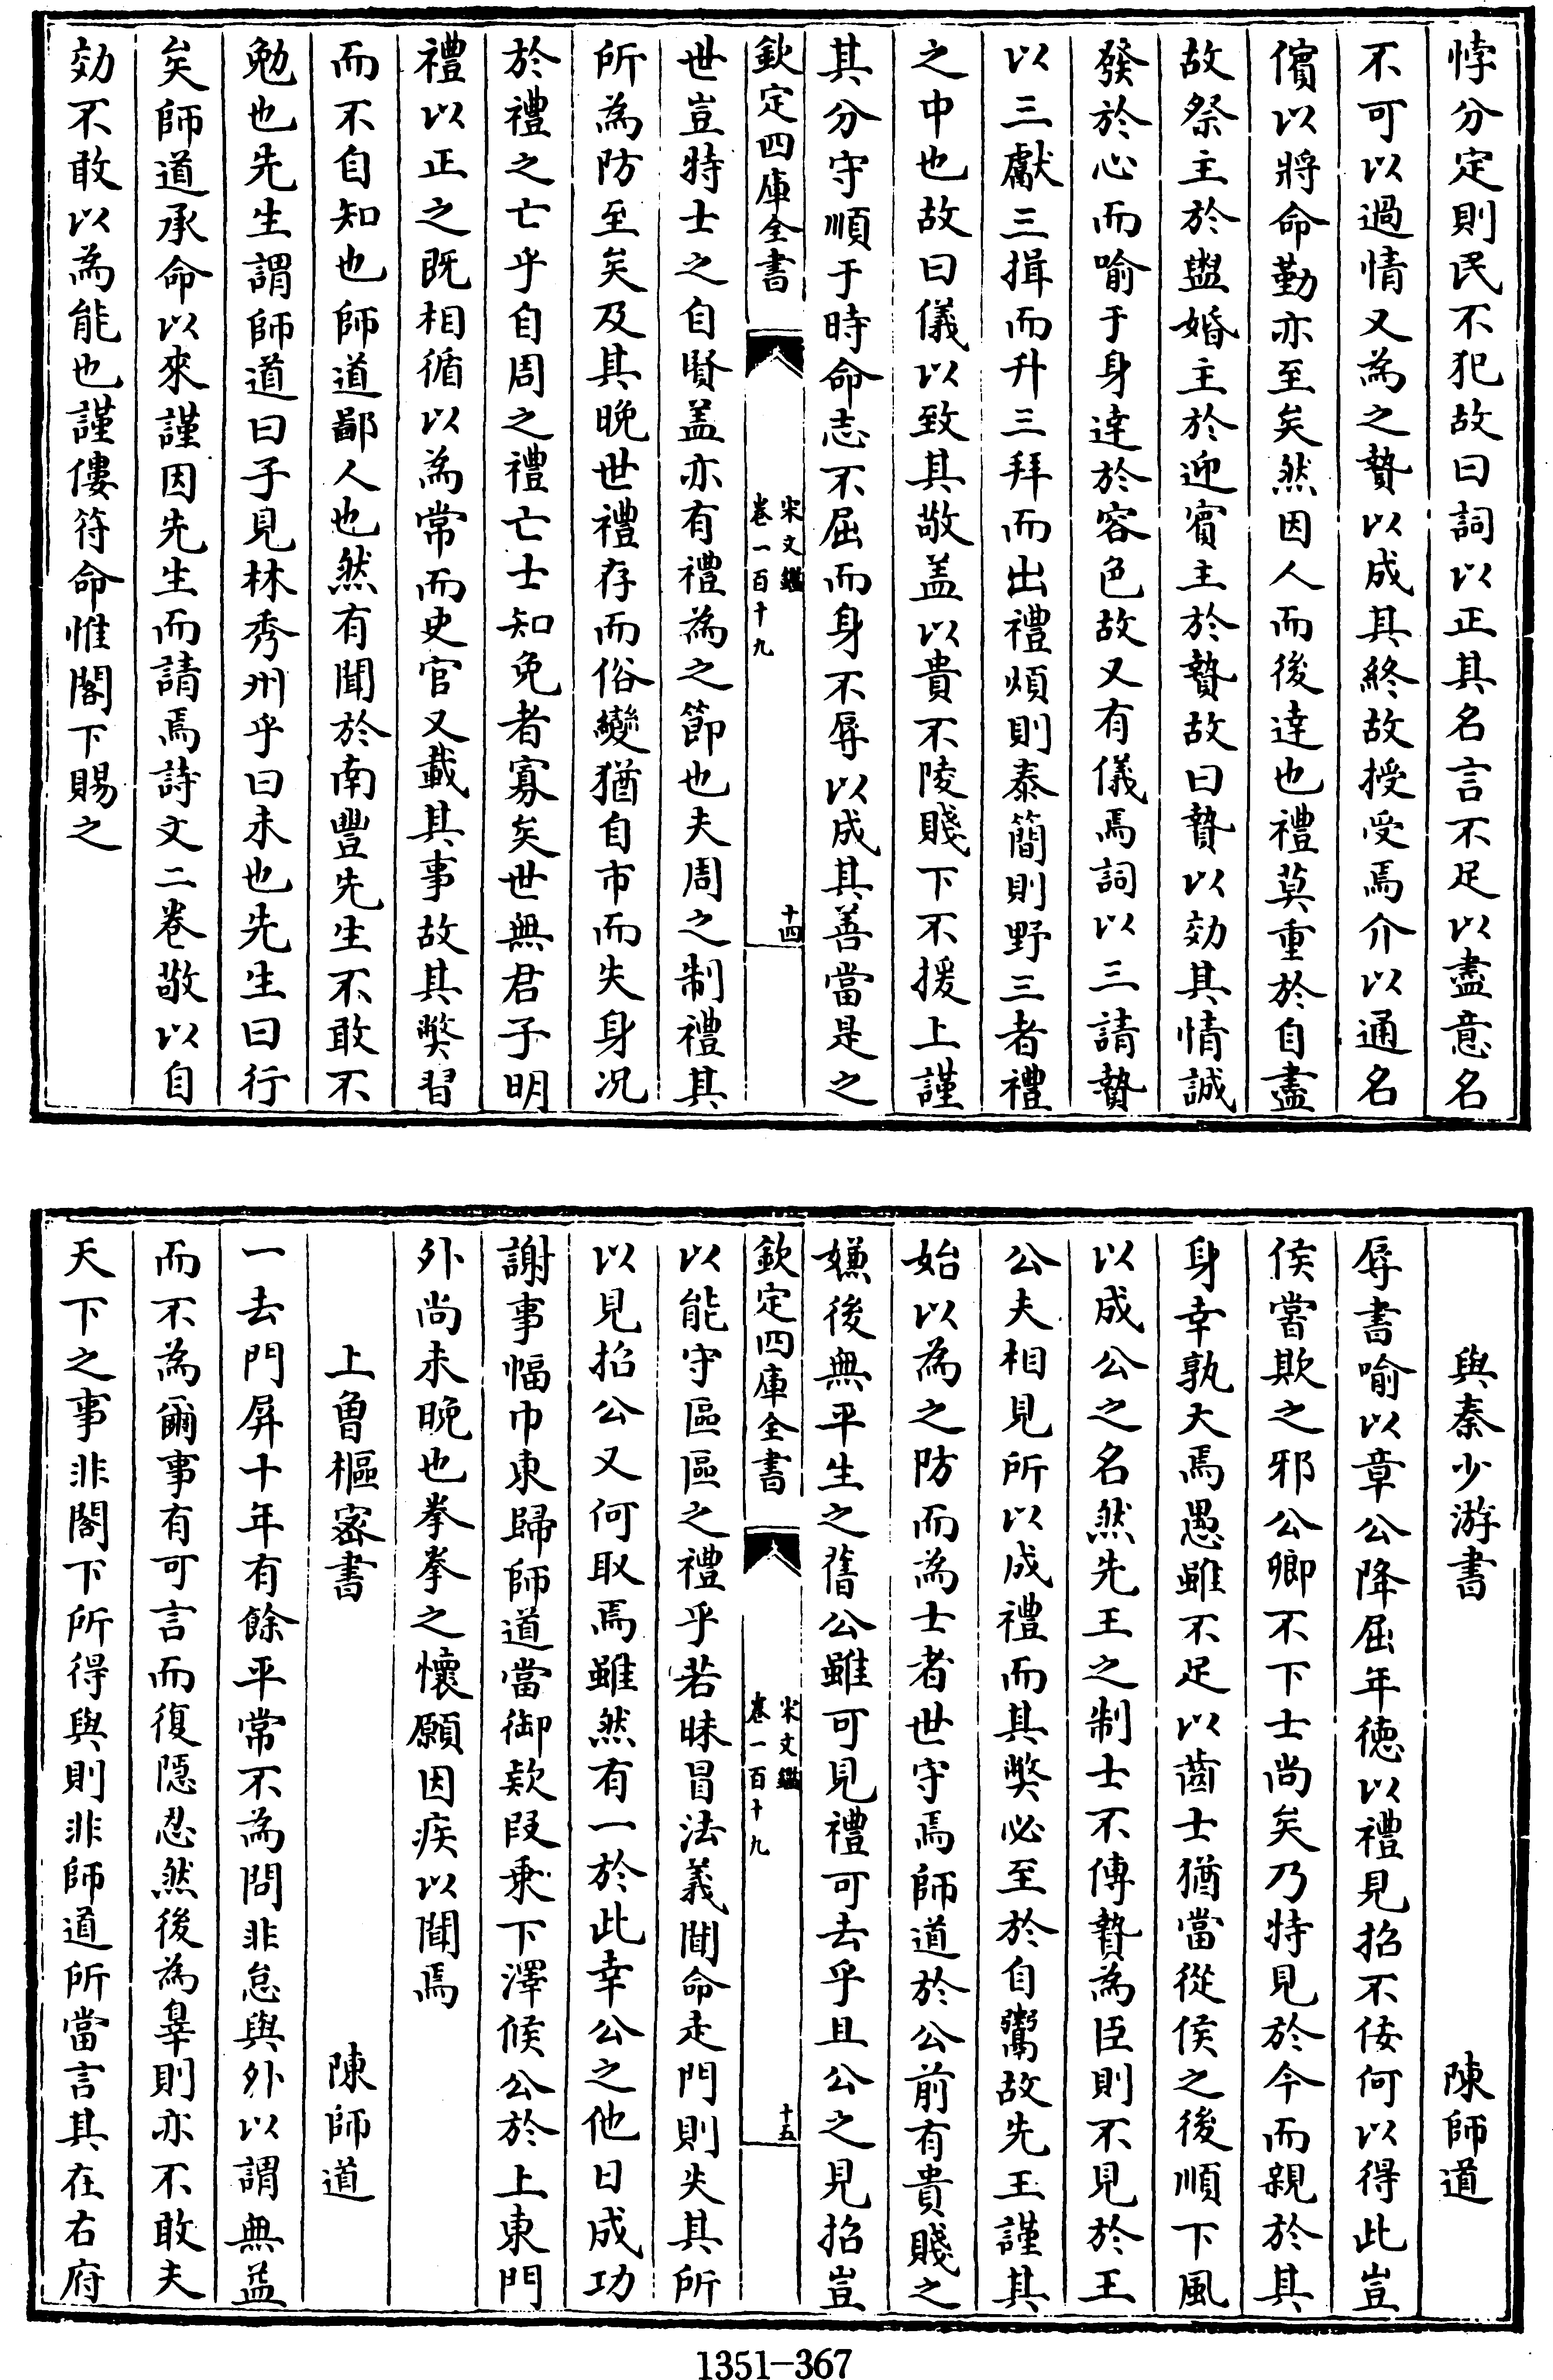 悖分定則民不犯故曰詞以正其名言不足以盡意名
不可以過情又為之贄以成其終故授受焉介以通名
儐以將命勤亦至矣然因人而後達也禮莫重於自盡
故祭主於盥婚主於迎賓主於贄故曰贄以効其情誠
發於心而喻于身達於容色故又有儀焉詞以三請贄
以三獻三揖而升三拜而出禮煩則泰簡則野三者禮
之中也故曰儀以致其敬盖以貴不陵賤下不援上謹
其分守順于時命志不屈而身不辱以成其善當是之
欽定四庫全書
宋文鑑
卷一百十九
十四
世豈特士之自賢盖亦有禮為之節也夫周之制禮其
所為防至矣及其晚世禮存而俗變猶自市而失身况
於禮之亡乎自周之禮亡士知免者寡矣世無君子明
禮以正之既相循以為常而史官又載其事故其獘習
而不自知也師道鄙人也然有聞於南豐先生不敢不
勉也先生謂師道曰子見林秀州乎曰未也先生曰行
矣師道承命以來謹因先生而請焉詩文二卷敬以自
効不敢以為能也謹僂符命惟閣下賜之
與秦少游書
陳師道
辱書喻以章公降屈年德以禮見招不佞何以得此豈
侯嘗欺之邪公卿不下士尚矣乃特見於今而親於其
身幸孰大焉愚雖不足以齒士猶當從侯之後順下風
以成公之名然先王之制士不傳贄為臣則不見於王
公夫相見所以成禮而其獘必至於自鬻故先王謹其
始以為之防而為士者世守焉師道於公前有貴賤之
嫌後無平生之舊公雖可見禮可去乎且公之見招豈
欽定四庫全書
宋文鑑
卷一百十九
十五
以能守區區之禮乎若昧冒法義聞命走門則失其所
以見招公又何取焉雖然有一於此幸公之他日成功
謝事幅巾東歸師道當御欵段乘下澤候公於上東門
外尚未晚也拳拳之懷願因疾以聞焉
上曾樞密書
陳師道
一去門屏十年有餘平常不為問非怠與外以謂無益
而不為爾事有可言而復隱忍然後為辠則亦不敢夫
天下之事非閣下所得與則非師道所當言其在右府
1351-367